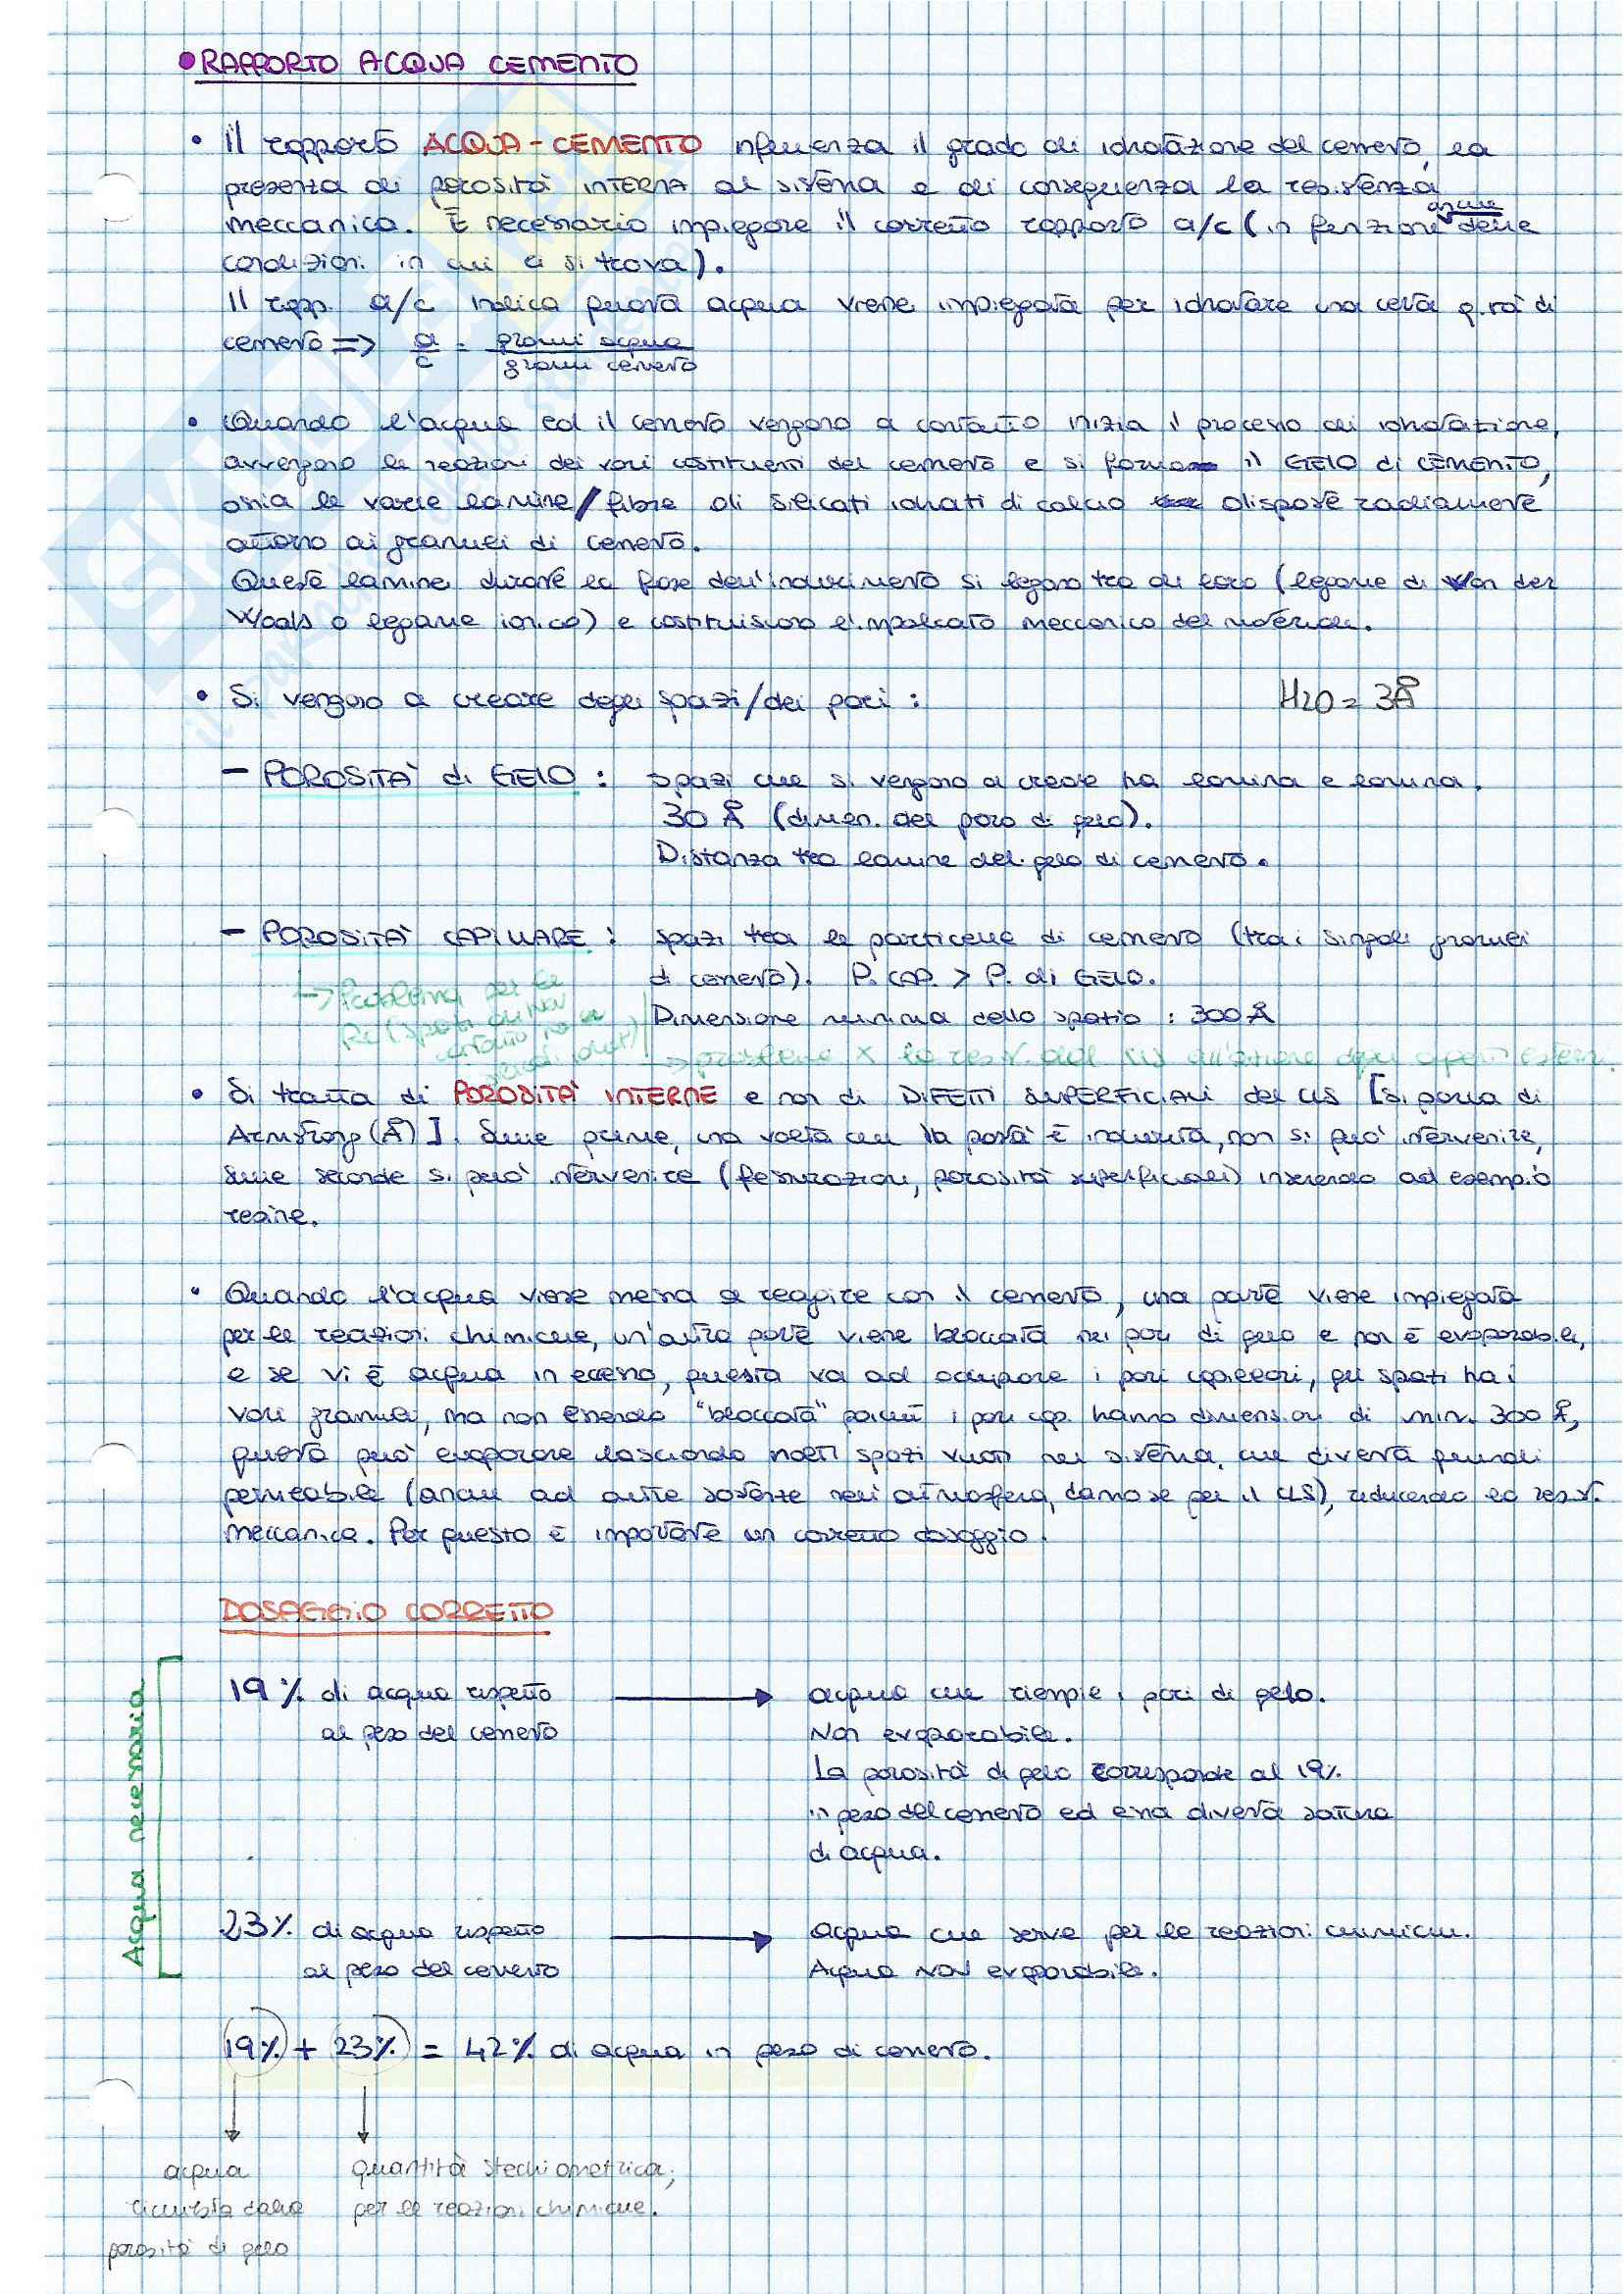 • RAPPORTO ACQUA CEMENTO
• Il rapporto ACQUA-CEMENTO influenza il grado di idratazione del cemento, la
presenza di porosità INTERNA al sistema e di conseguenza la resistenza
meccanica. È necessario impiegare il corretto rapporto a/c (in funzione anche delle
condizioni in cui ci si trova).
Il rapp. a/c indica quanta acqua viene impiegata per idratare una certa q.tà di
cemento => a/c = grammi acqua / grammi cemento
• Quando l'acqua ed il cemento vengono a contatto inizia il processo di idratazione,
avvengono le reazioni dei vari costituenti del cemento e si forma il GELO di CEMENTO,
ossia le varie lamine/fibre di silicati idrati di calcio disposte radialmente
attorno ai granuli di cemento.
Queste lamine durante la fase dell'indurimento si legano tra di loro (legame di Van der
Waals o legame ionico) e costituiscono l'impalcato meccanico del materiale.
• Si vengono a creare degli spazi/dei pori : H2O = 3Å
- POROSITÀ di GELO : spazi che si vengono a creare tra lamina e lamina.
30 Å (dimen. del poro di gelo).
Distanza tra lamine del gelo di cemento.
- POROSITÀ CAPILLARE : spazi tra le particelle di cemento (tra i singoli granuli
di cemento). P. CAP. > P. di GELO.
Dimensione minima dello spazio : 300 Å
→ Problema per la
Rc (spazi che non
→ problema x la resist. del cls all'azione degli agenti esterni.
• Si tratta di POROSITÀ INTERNE e non di DIFETTI SUPERFICIALI del CLS [si parla di
Armstrong (Å)]. Sulle prime, una volta che la pasta è indurita, non si può intervenire,
sulle seconde si può intervenire (fessurazioni, porosità superficiali) inserendo ad esempio
resine.
• Quando l'acqua viene messa a reagire con il cemento, una parte viene impiegata
per le reazioni chimiche, un'altra parte viene bloccata nei pori di gelo e non è evaporabile,
e se vi è acqua in eccesso, questa va ad occupare i pori capillari, gli spazi tra i
vari granuli, ma non essendo "bloccata" poiché i pori cap. hanno dimensioni di min. 300 Å,
questa può evaporare lasciando molti spazi vuoti nel sistema, che diventa quindi
permeabile (anche ad altre sostanze nell'atmosfera, dannose per il CLS), riducendo la resist.
meccanica. Per questo è importante un corretto dosaggio.
DOSAGGIO CORRETTO
Acqua necessaria
19% di acqua rispetto → acqua che riempie i pori di gelo.
al peso del cemento Non evaporabile.
La porosità di gelo corrisponde al 19%
in peso del cemento ed essa diventa satura
di acqua.
23% di acqua rispetto → acqua che serve per le reazioni chimiche.
al peso del cemento Acqua NON evaporabile.
19% + 23% = 42% di acqua in peso di cemento.
acqua quantità stechiometrica,
richiesta dalla per le reazioni chimiche.
porosità di gelo